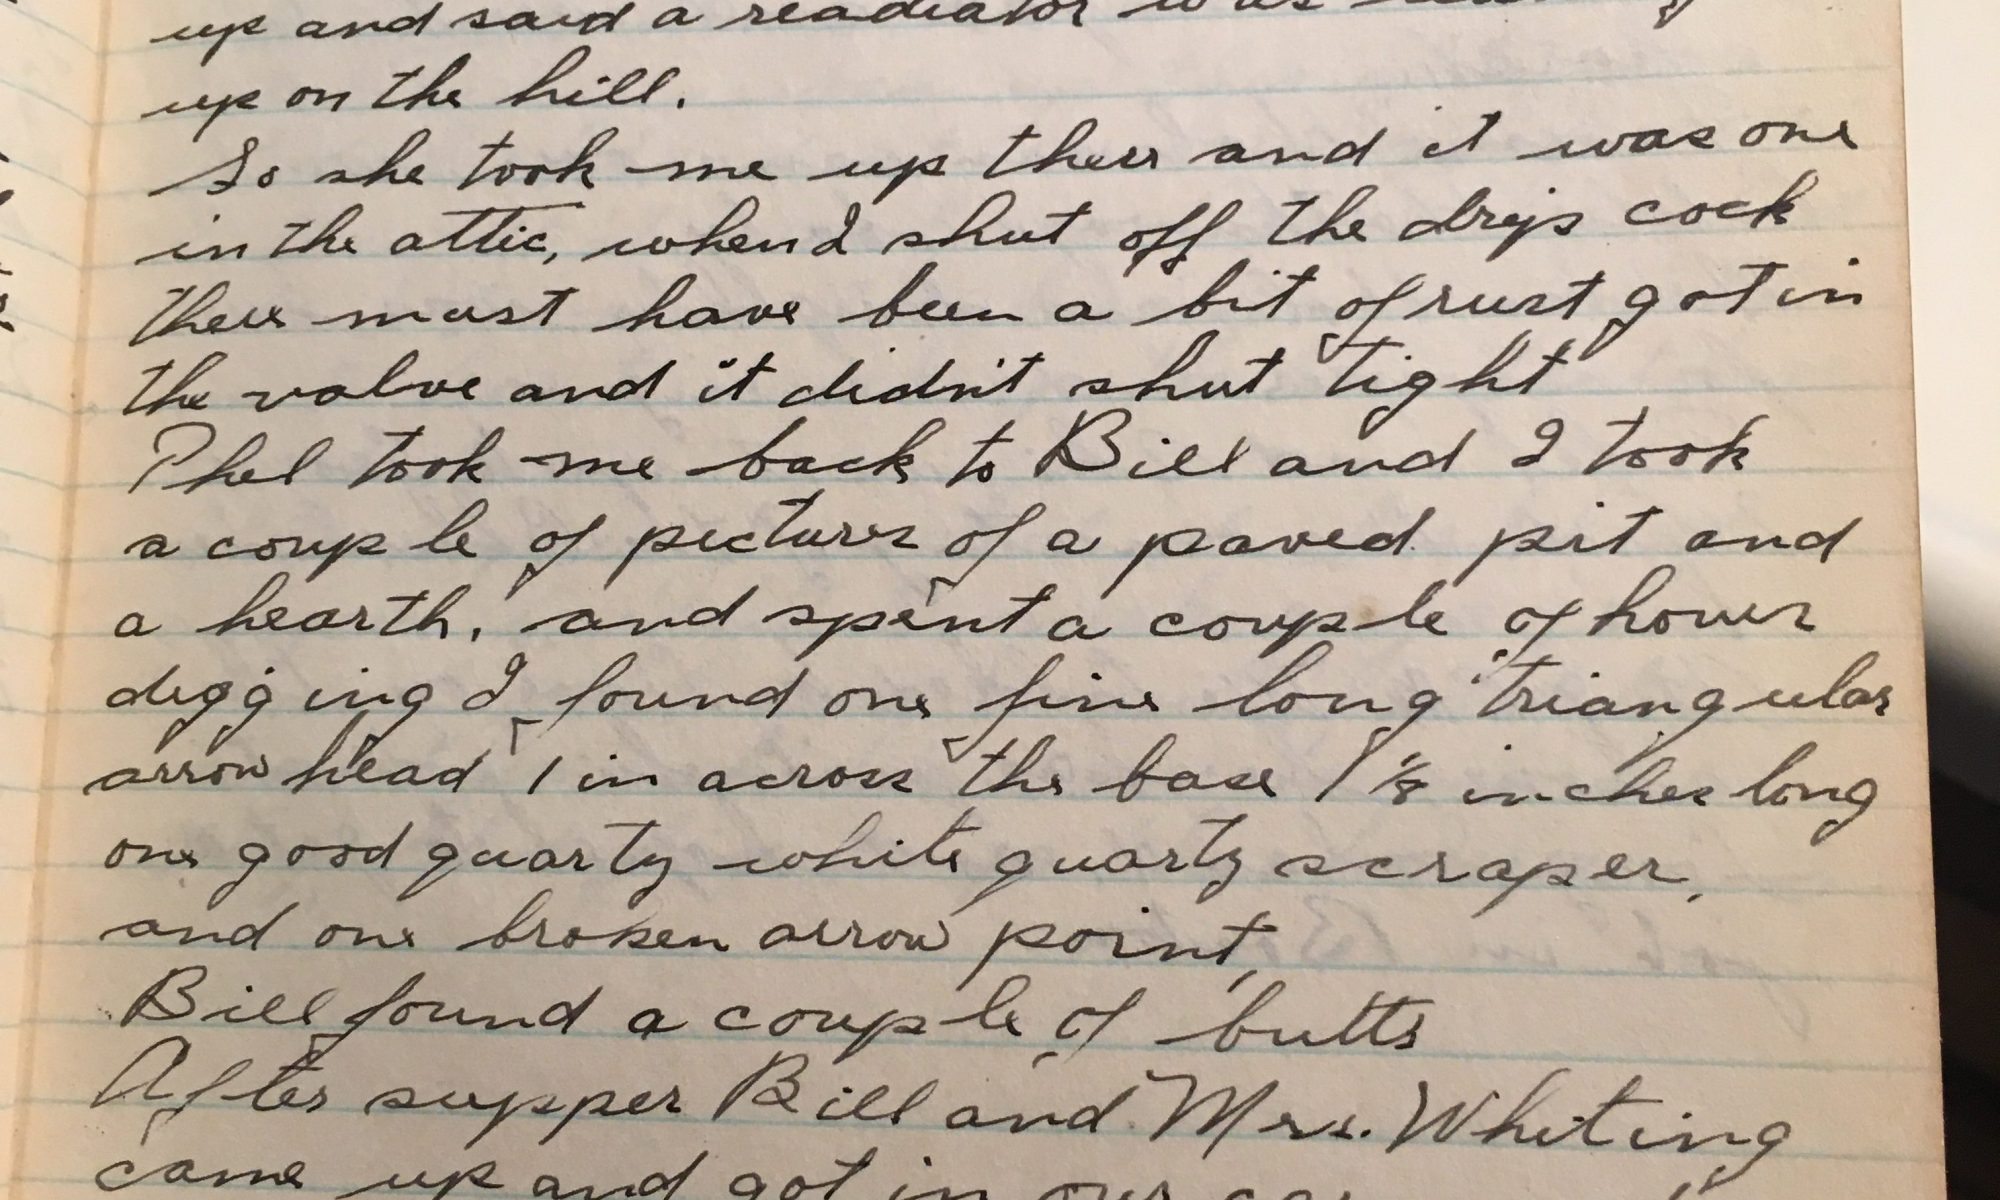 up and said a readiator was
up on the hill.
So she took me up there and it was one
in the attic, when I shut off the drip cock
there must have been a bit of rust got in
the valve and it didn't shut tight
Phel took me back to Bill and I took
a couple of pictures of a paved pit and
a hearth, and spent a couple of hours
digging I found one fine long triangular
arrow head 1 in across the base 1 1/8 inches long
one good quartz white quartz scraper,
and one broken arrow point,
Bill found a couple of butts
After supper Bill and Mrs. Whiting
came up and got in our car